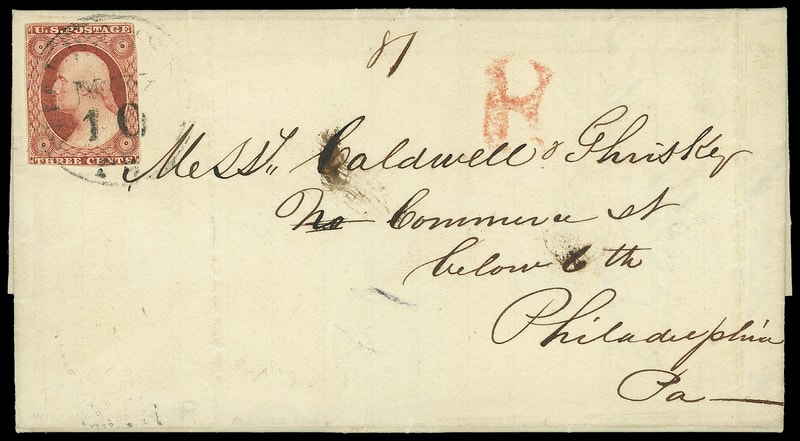 U.S. POSTAGE
THREE CENTS
10
81
R
Messrs. Caldwell & Thriskey
No Commerce st
below 6 th
Philadelphia
Pa